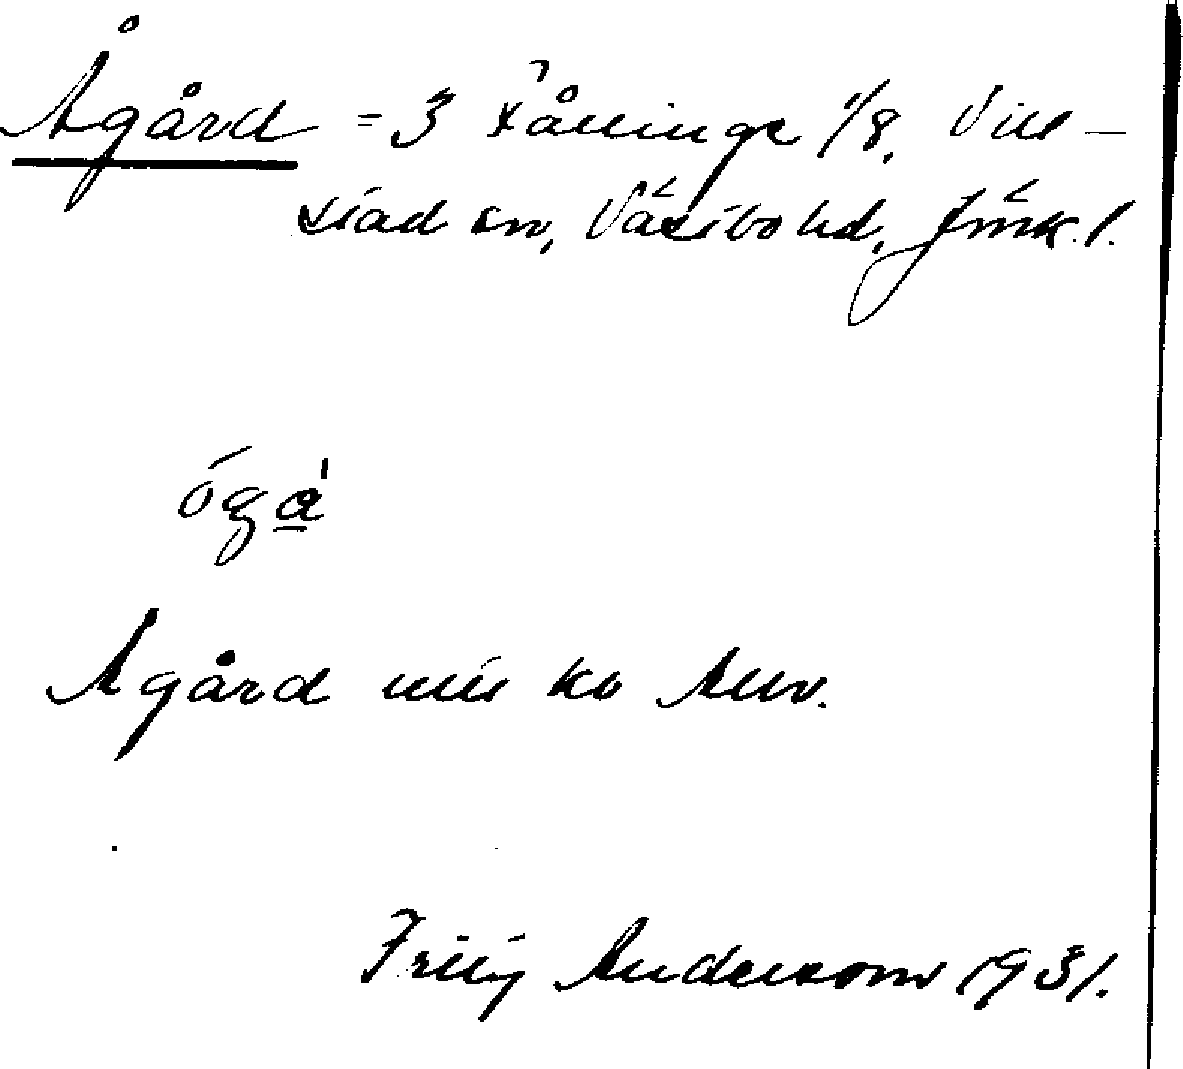 Ågård = 3 Tållinge 1/8, Vill-
stad sn, Västbo hd, Jönk. l.
ógà
Ågård
Fritz Andersson 1931.